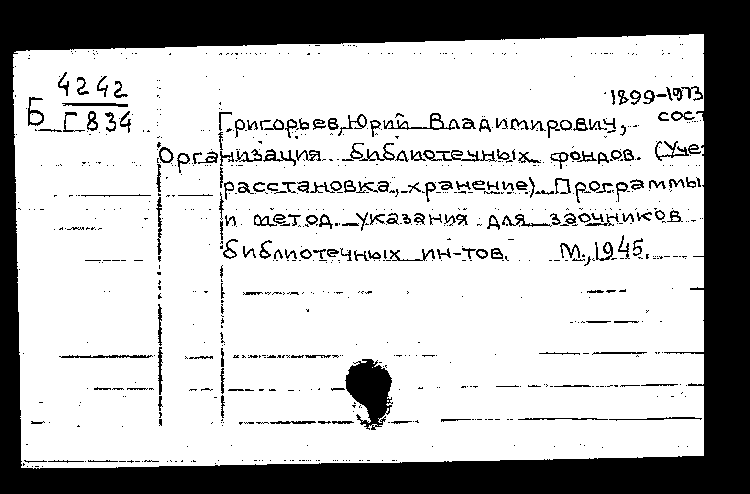 4242
Б Г834
1899-1973
Григорьев, Юрий Владимирович, сост
Организация библиотечных фондов. (Уче
расстановка, хранение). Программы
и метод. указания для заочников
библиотечных ин-тов. М., 1945.